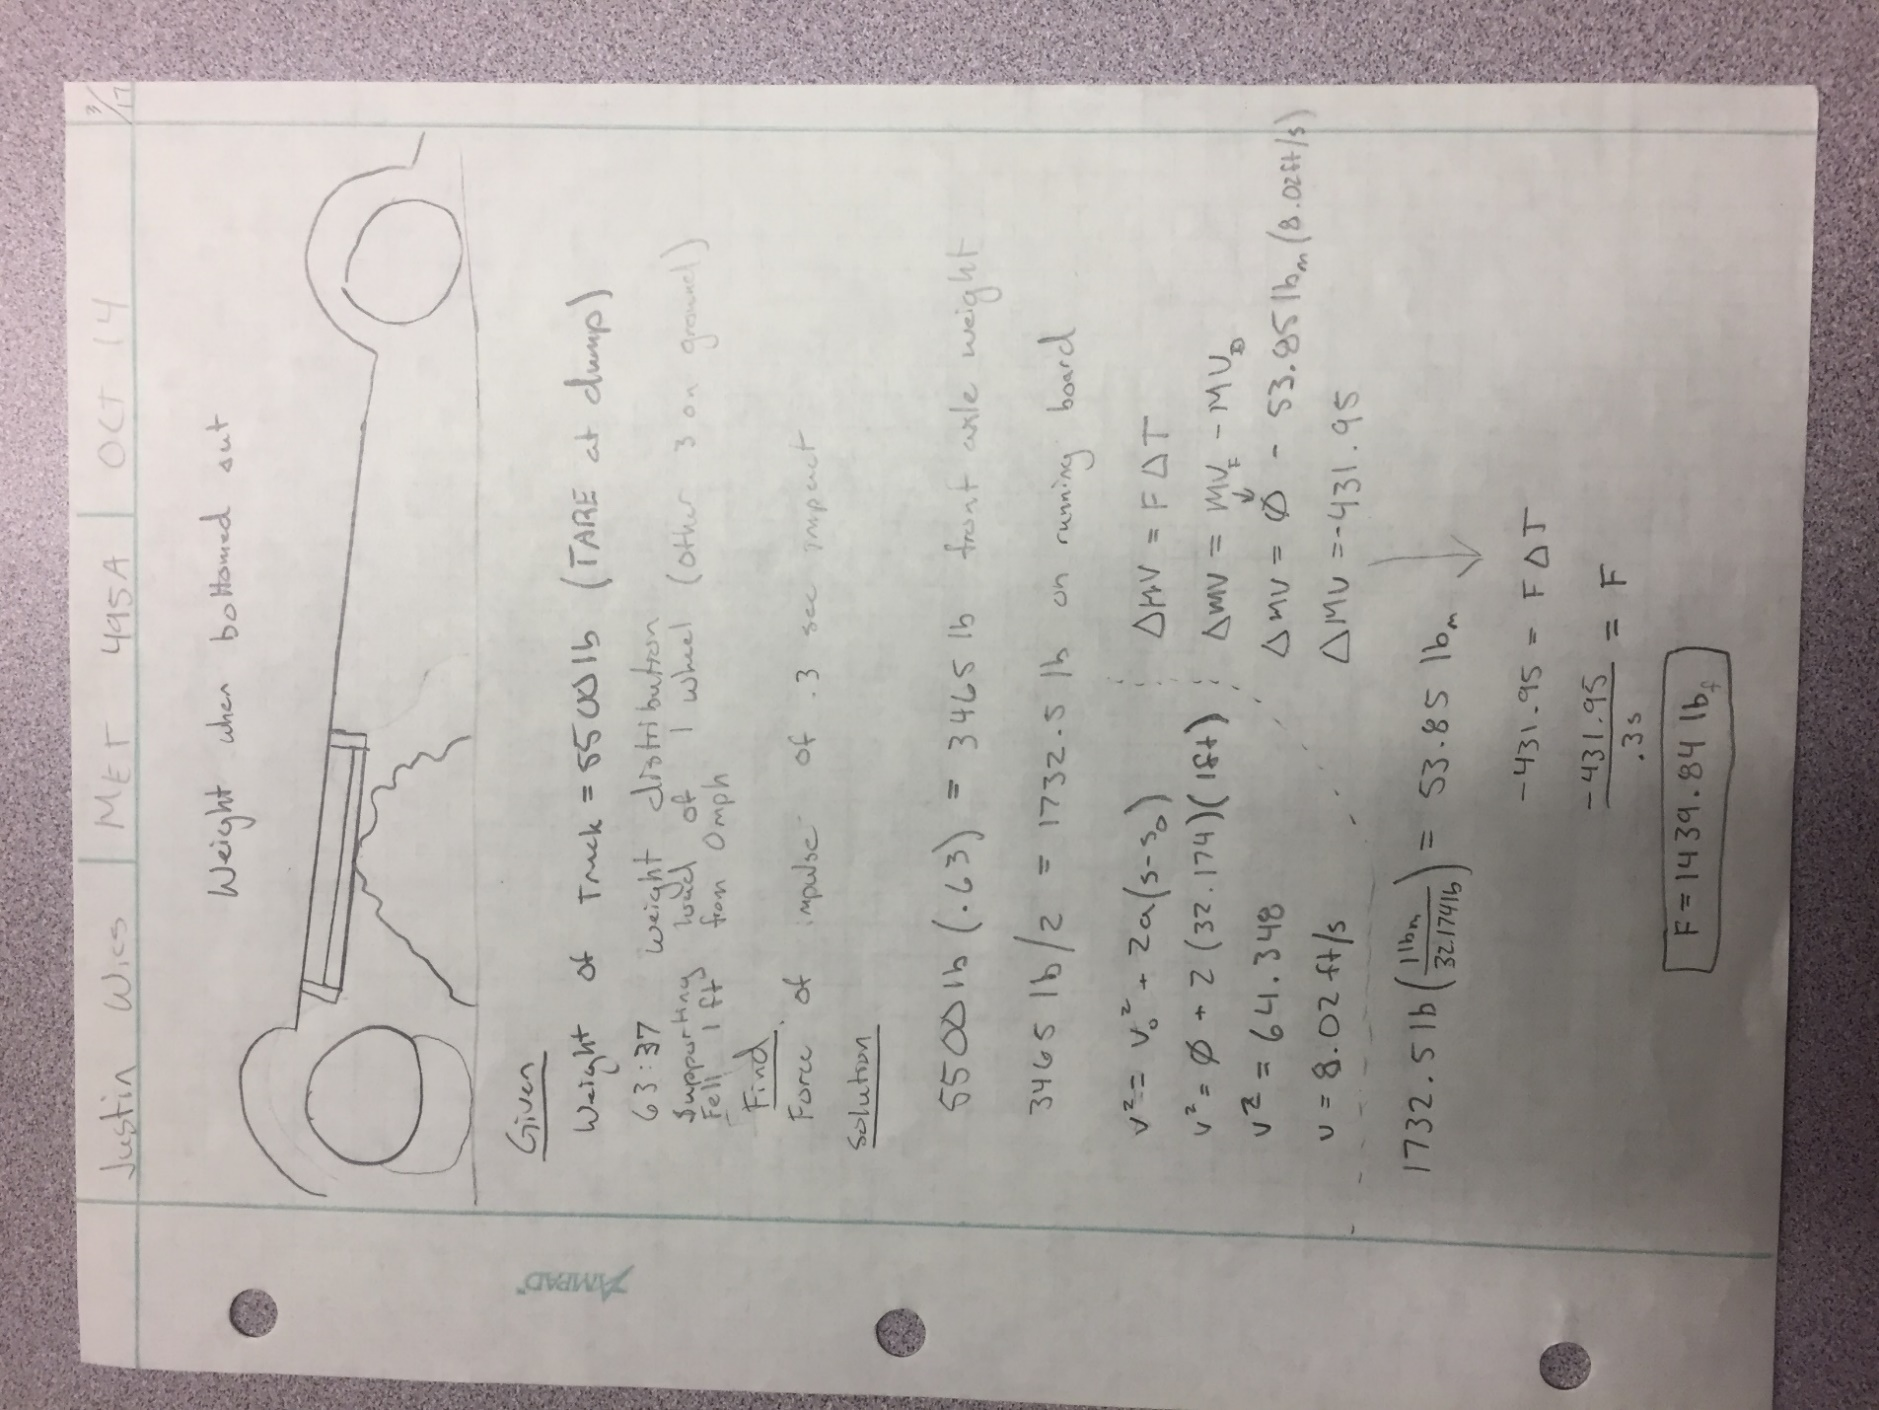 Justin Wies | MET 495A | OCT 14 3/17
Weight when bottomed out
Given
Weight of Truck = 5500 lb (TARE at dump)
63:37 weight distribution
Supporting load of 1 wheel (other 3 on ground)
Fell 1 ft from 0mph
Find
Force of impulse of .3 sec impact
Solution
5500 lb (.63) = 3465 lb front axle weight
3465 lb/2 = 1732.5 lb on running board
v² = v₀² + 2a(s-s₀)
v² = Ø + 2(32.174)(1ft)
v² = 64.348
v = 8.02 ft/s
ΔMV = FΔT
ΔMV = MV_F - MV_0
ΔMV = Ø - 53.85 lbₘ(8.02ft/s)
ΔMV = -431.95
1732.5 lb (1 lbₘ / 32.174 lb) = 53.85 lbₘ
-431.95 = FΔT
-431.95 / .3s = F
F = 1439.84 lb_f
AMPAD